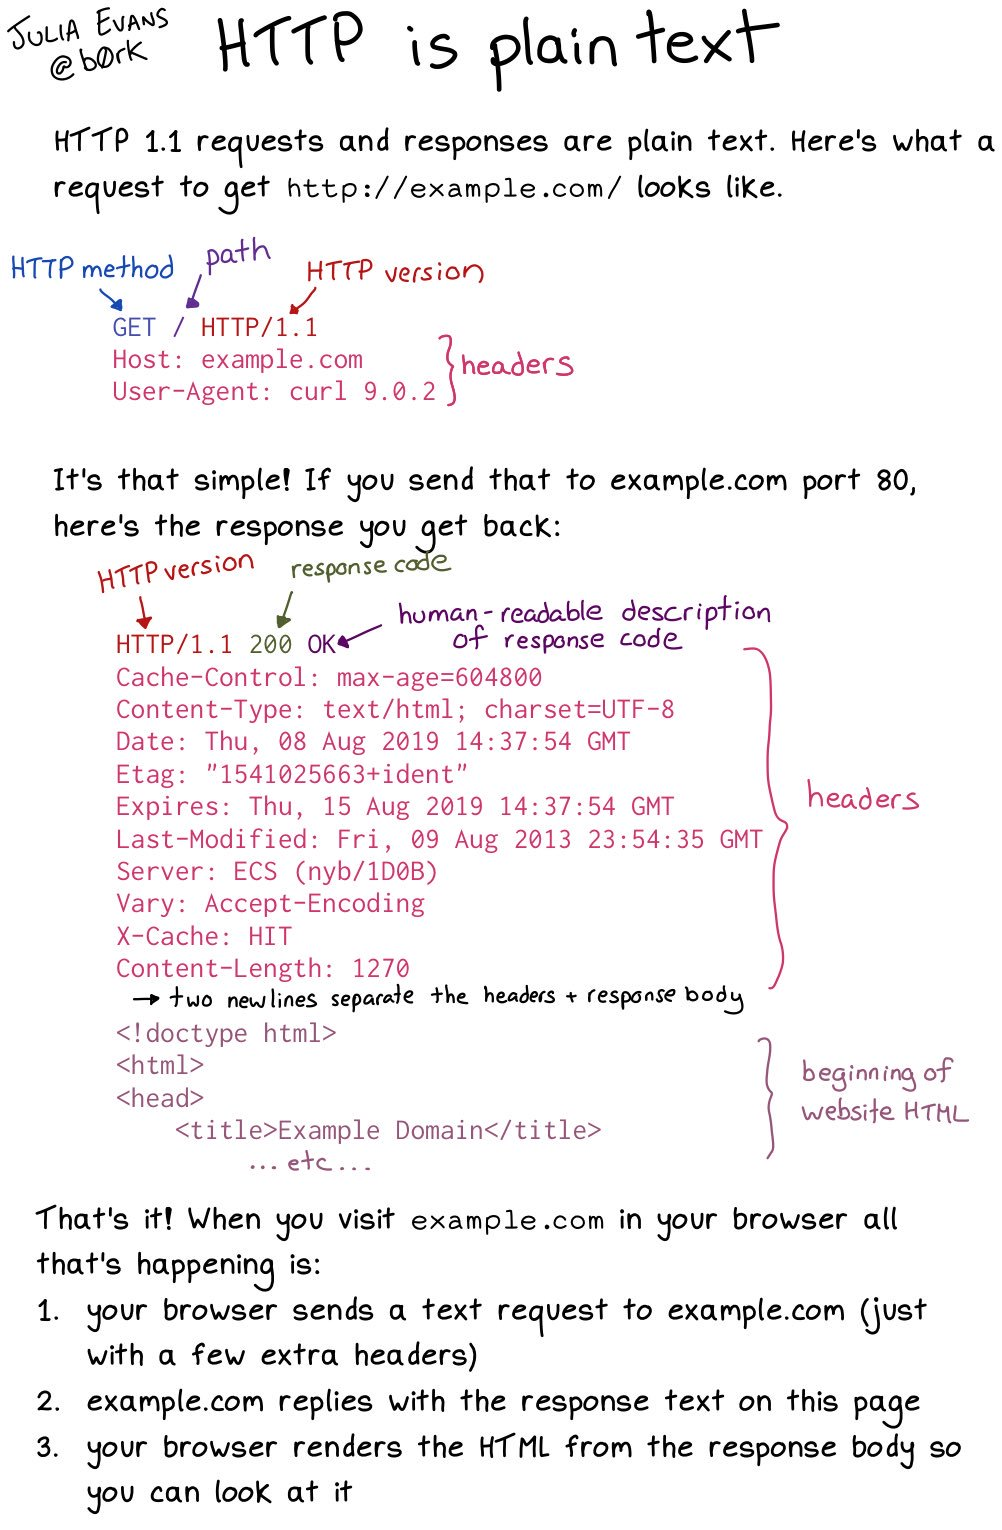 JULIA EVANS
@b0rk
HTTP is plain text
HTTP 1.1 requests and responses are plain text. Here's what a
request to get http://example.com/ looks like.
HTTP method
path
HTTP version
GET / HTTP/1.1
Host: example.com
User-Agent: curl 9.0.2
headers
It's that simple! If you send that to example.com port 80,
here's the response you get back:
HTTP version
response code
human-readable description
of response code
HTTP/1.1 200 OK
Cache-Control: max-age=604800
Content-Type: text/html; charset=UTF-8
Date: Thu, 08 Aug 2019 14:37:54 GMT
Etag: "1541025663+ident"
Expires: Thu, 15 Aug 2019 14:37:54 GMT
Last-Modified: Fri, 09 Aug 2013 23:54:35 GMT
Server: ECS (nyb/1D0B)
Vary: Accept-Encoding
X-Cache: HIT
Content-Length: 1270
headers
→ two newlines separate the headers + response body
<!doctype html>
<html>
<head>
<title>Example Domain</title>
... etc ...
beginning of
website HTML
That's it! When you visit example.com in your browser all
that's happening is:
1. your browser sends a text request to example.com (just
with a few extra headers)
2. example.com replies with the response text on this page
3. your browser renders the HTML from the response body so
you can look at it